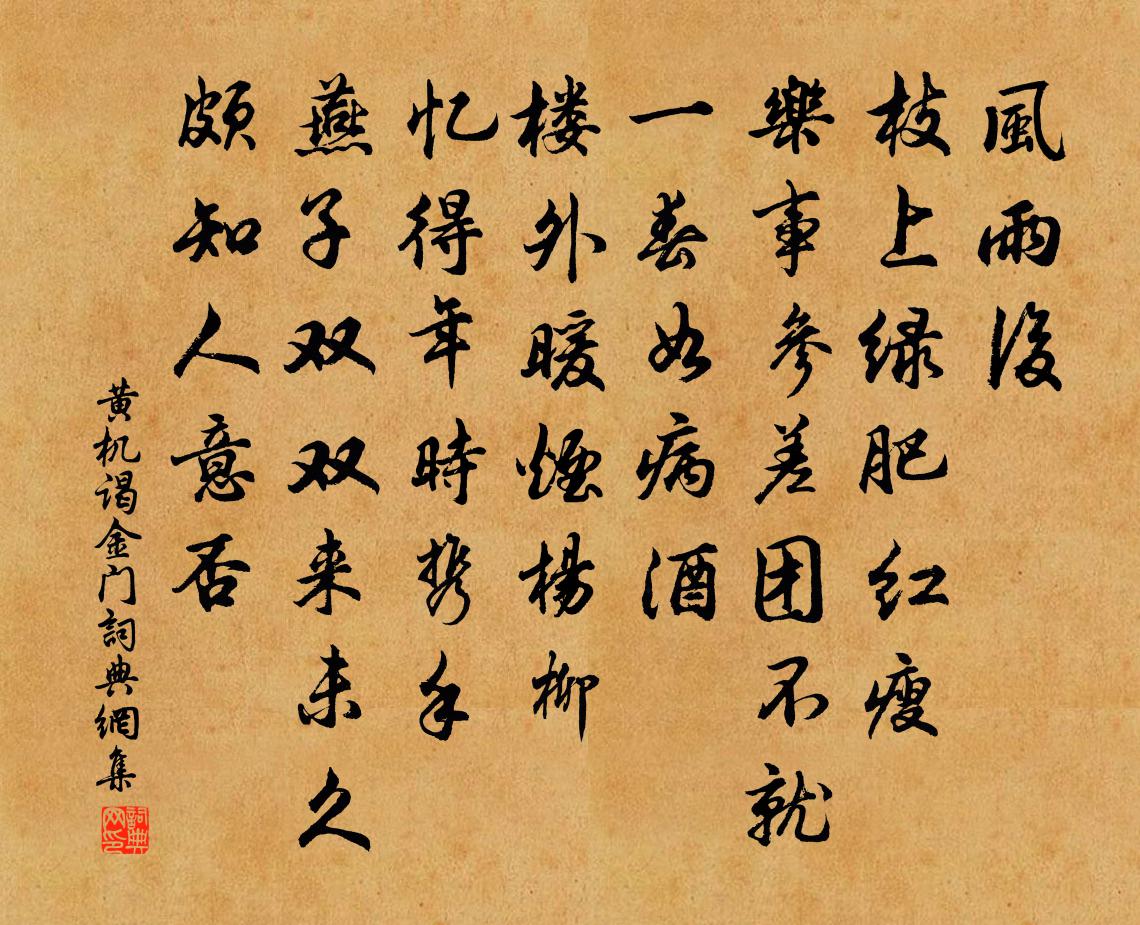 風雨後
枝上绿肥红瘦
樂事參差团不就
一春如病酒
楼外暖煙楊柳
忆得年時携手
燕子双双来未久
頗知人意否
黄机谒金门詞典網集
詞典网印